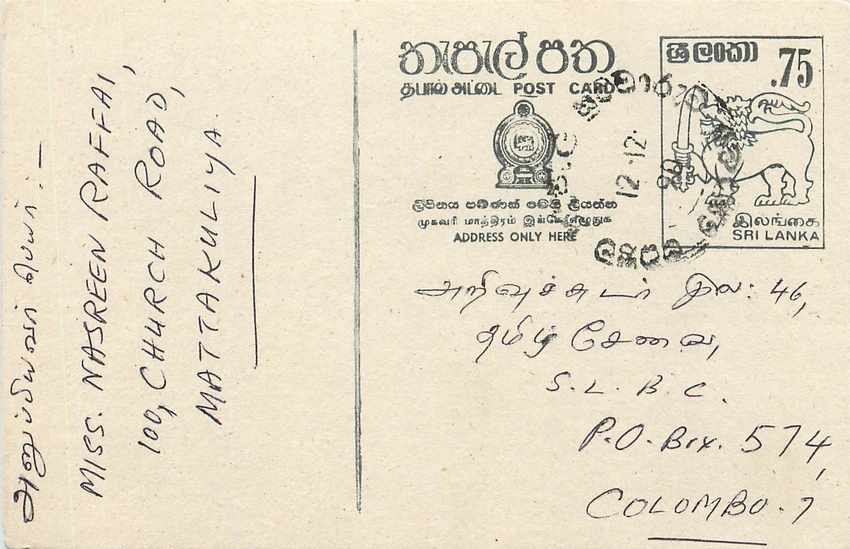 අනුප්පියவர් பெயர் :—
MISS. NASREEN RAFFAI,
100, CHURCH ROAD,
MATTAKULIYA.
තැපැල් පත
தபால் அட்டை POST CARD
ලිපිනය පමණක් මෙහි ලියන්න
முகவரி மாத்திரம் இங்கே எழுதுக
ADDRESS ONLY HERE
ශ්‍රී ලංකා
.75
இலங்கை
SRI LANKA
12.12.
அறிவுச்சுடர் இல: 46,
தமிழ் சேவை,
S. L. B. C.
P.O. Box. 574,
COLOMBO. 7